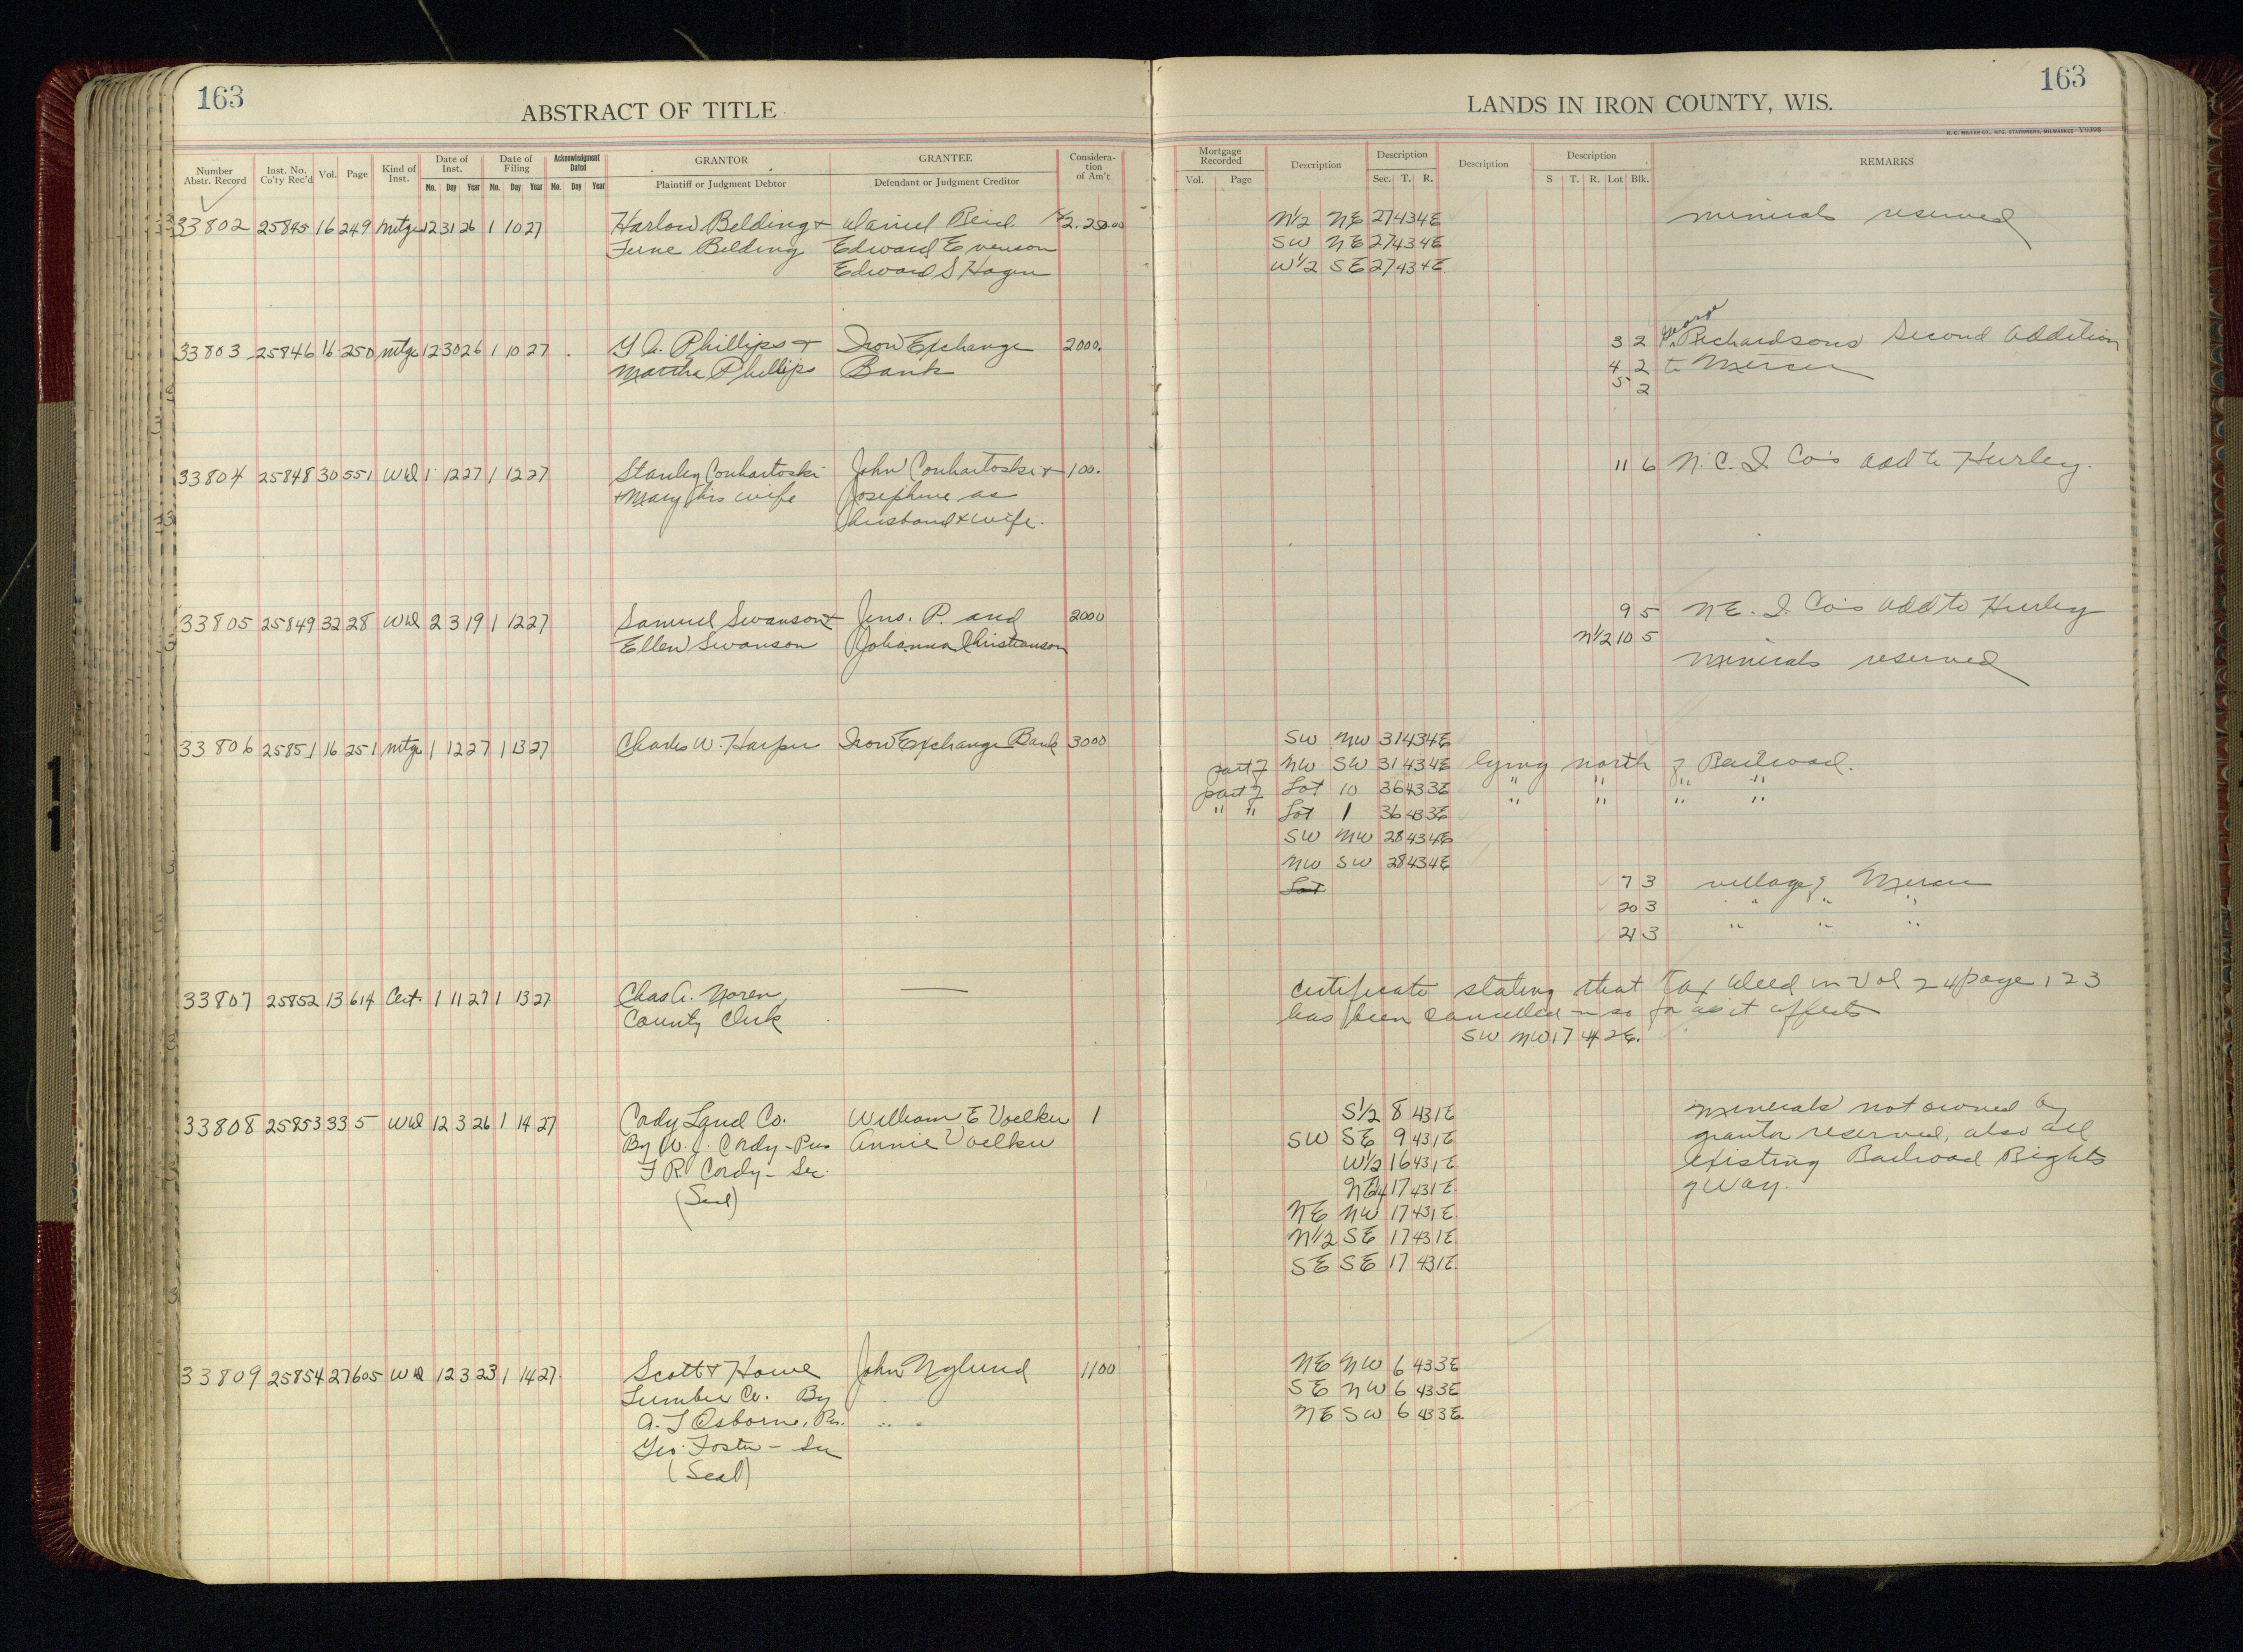 163
ABSTRACT OF TITLE
LANDS IN IRON COUNTY, WIS.
163
H. C. MILLER CO., MFG. STATIONERS, MILWAUKEE V9395
Number Abstr. Record | Inst. No. Co'ty Rec'd | Vol. | Page | Kind of Inst. | Date of Inst. Mo. Day Year | Date of Filing Mo. Day Year | Acknowledgment Dated Mo. Day Year | GRANTOR Plaintiff or Judgment Debtor | GRANTEE Defendant or Judgment Creditor | Consideration of Am't | Mortgage Recorded Vol. Page | Description | Description Sec. T. R. | Description | Description S T. R. Lot Blk. | REMARKS
33802 25845 16 249 Mtge 12 31 26 1 10 27 Harlow Belding & Daniel Reid N1/2 NE 27 43 4E minerals reserved
June Belding Edward Evenson SW NE 27 43 4E
Edward S Hagen W1/2 SE 27 43 4E
33803 25846 16 250 Mtge 12 30 26 1 10 27 Y A. Phillips & Iron Exchange 2000. 3 2 George Richardsons Second Addition
Martha Phillips Bank 4 2 to Mercer
5 2
33804 25848 30 551 Wd 1 12 27 1 12 27 Stanley Conhartoski John Conhartoski & 100. 11 6 N. C. I. Co's add to Hurley.
& Mary his wife Josephine as
husband & wife.
33805 25849 32 28 Wd 2 3 19 1 12 27 Samuel Swanson & Jens. P. and 2000 9 5 N E. I. Co's add to Hurley
Ellen Swanson Johanna Christianson N1/2 10 5
minerals reserved
33806 25851 16 251 Mtge 1 12 27 1 13 27 Charles W. Harper Iron Exchange Bank 3000 SW NW 31 43 4E
part of NW SW 31 43 4E lying north of Railroad.
part of Lot 10 36 43 3E " " " "
" " Lot 1 36 43 3E " " " "
SW NW 28 43 4E
NW SW 28 43 4E
Lot 7 3 village of Mercer
20 3 " " "
21 3 " " "
33807 25852 13 614 Cert. 1 11 27 1 13 27 Chas A. Noren, — Certificate stating that Tax Deed in Vol 24 page 123
County Clerk has been cancelled in so far as it affects
SW NW 17 44 2E.
33808 25853 33 5 Wd 12 3 26 1 14 27 Cordy Land Co. William E Voelker 1 S1/2 8 43 1E minerals not owned by
By W. J. Cordy - Pres Annie Voelker SW SE 9 43 1E grantor reserved, also all
F R. Cordy - Sec. W1/2 16 43 1E existing Railroad Rights
(Seal) NE1/4 17 43 1E of Way.
NE NW 17 43 1E
N1/2 SE 17 43 1E
SE SE 17 43 1E
33809 25854 27 605 Wd 12 3 23 1 14 27 Scott & Howe John Nylund 1100 NE NW 6 43 3E
Lumber Co. By SE NW 6 43 3E
A. L Osborne, Pres. NE SW 6 43 3E
Geo. Foster - Sec
(Seal)